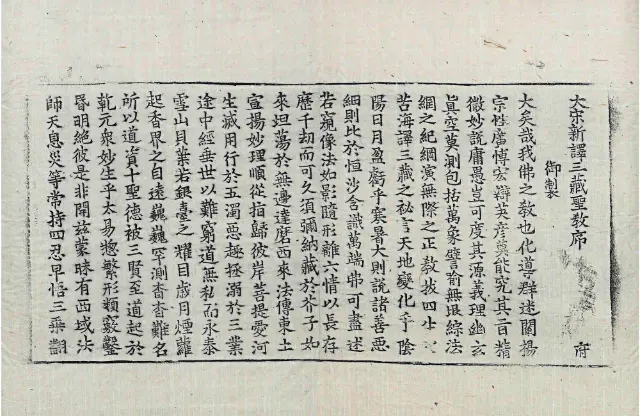 大宋新譯三藏聖教序 府
御製
大矣哉我佛之教也化導群迷闡揚
宗性廣博宏辯英彦莫能究其言精
微妙說庸愚豈可度其源義理幽玄
眞空莫測包括萬象譬喻無垠綜法
網之紀綱演無際之正教拔四生
苦海譯三藏之祕言天地變化乎陰
陽日月盈虧乎寒暑大則說諸善惡
細則比於恒沙含識萬端弗可盡述
若窺像法如影隨形離六情以長存
歷千劫而可久須彌納藏於芥子如
來坦蕩於無邊達磨西來法傳東土
宣揚妙理順從指歸彼岸菩提愛河
生滅用行於五濁惡趣拯溺於三業
途中經垂世以難窮道無私而永泰
雪山貝葉若銀臺之耀目歲月煙蘿
起香界之自遠巍巍罕測杳杳難名
所以道資十聖德被三賢至道起於
乾元衆妙生乎太易揔繁形類竅鑿
昬明絕彼是非開兹蒙昧有西域法
師天息災等常持四忍早悟三乘翻